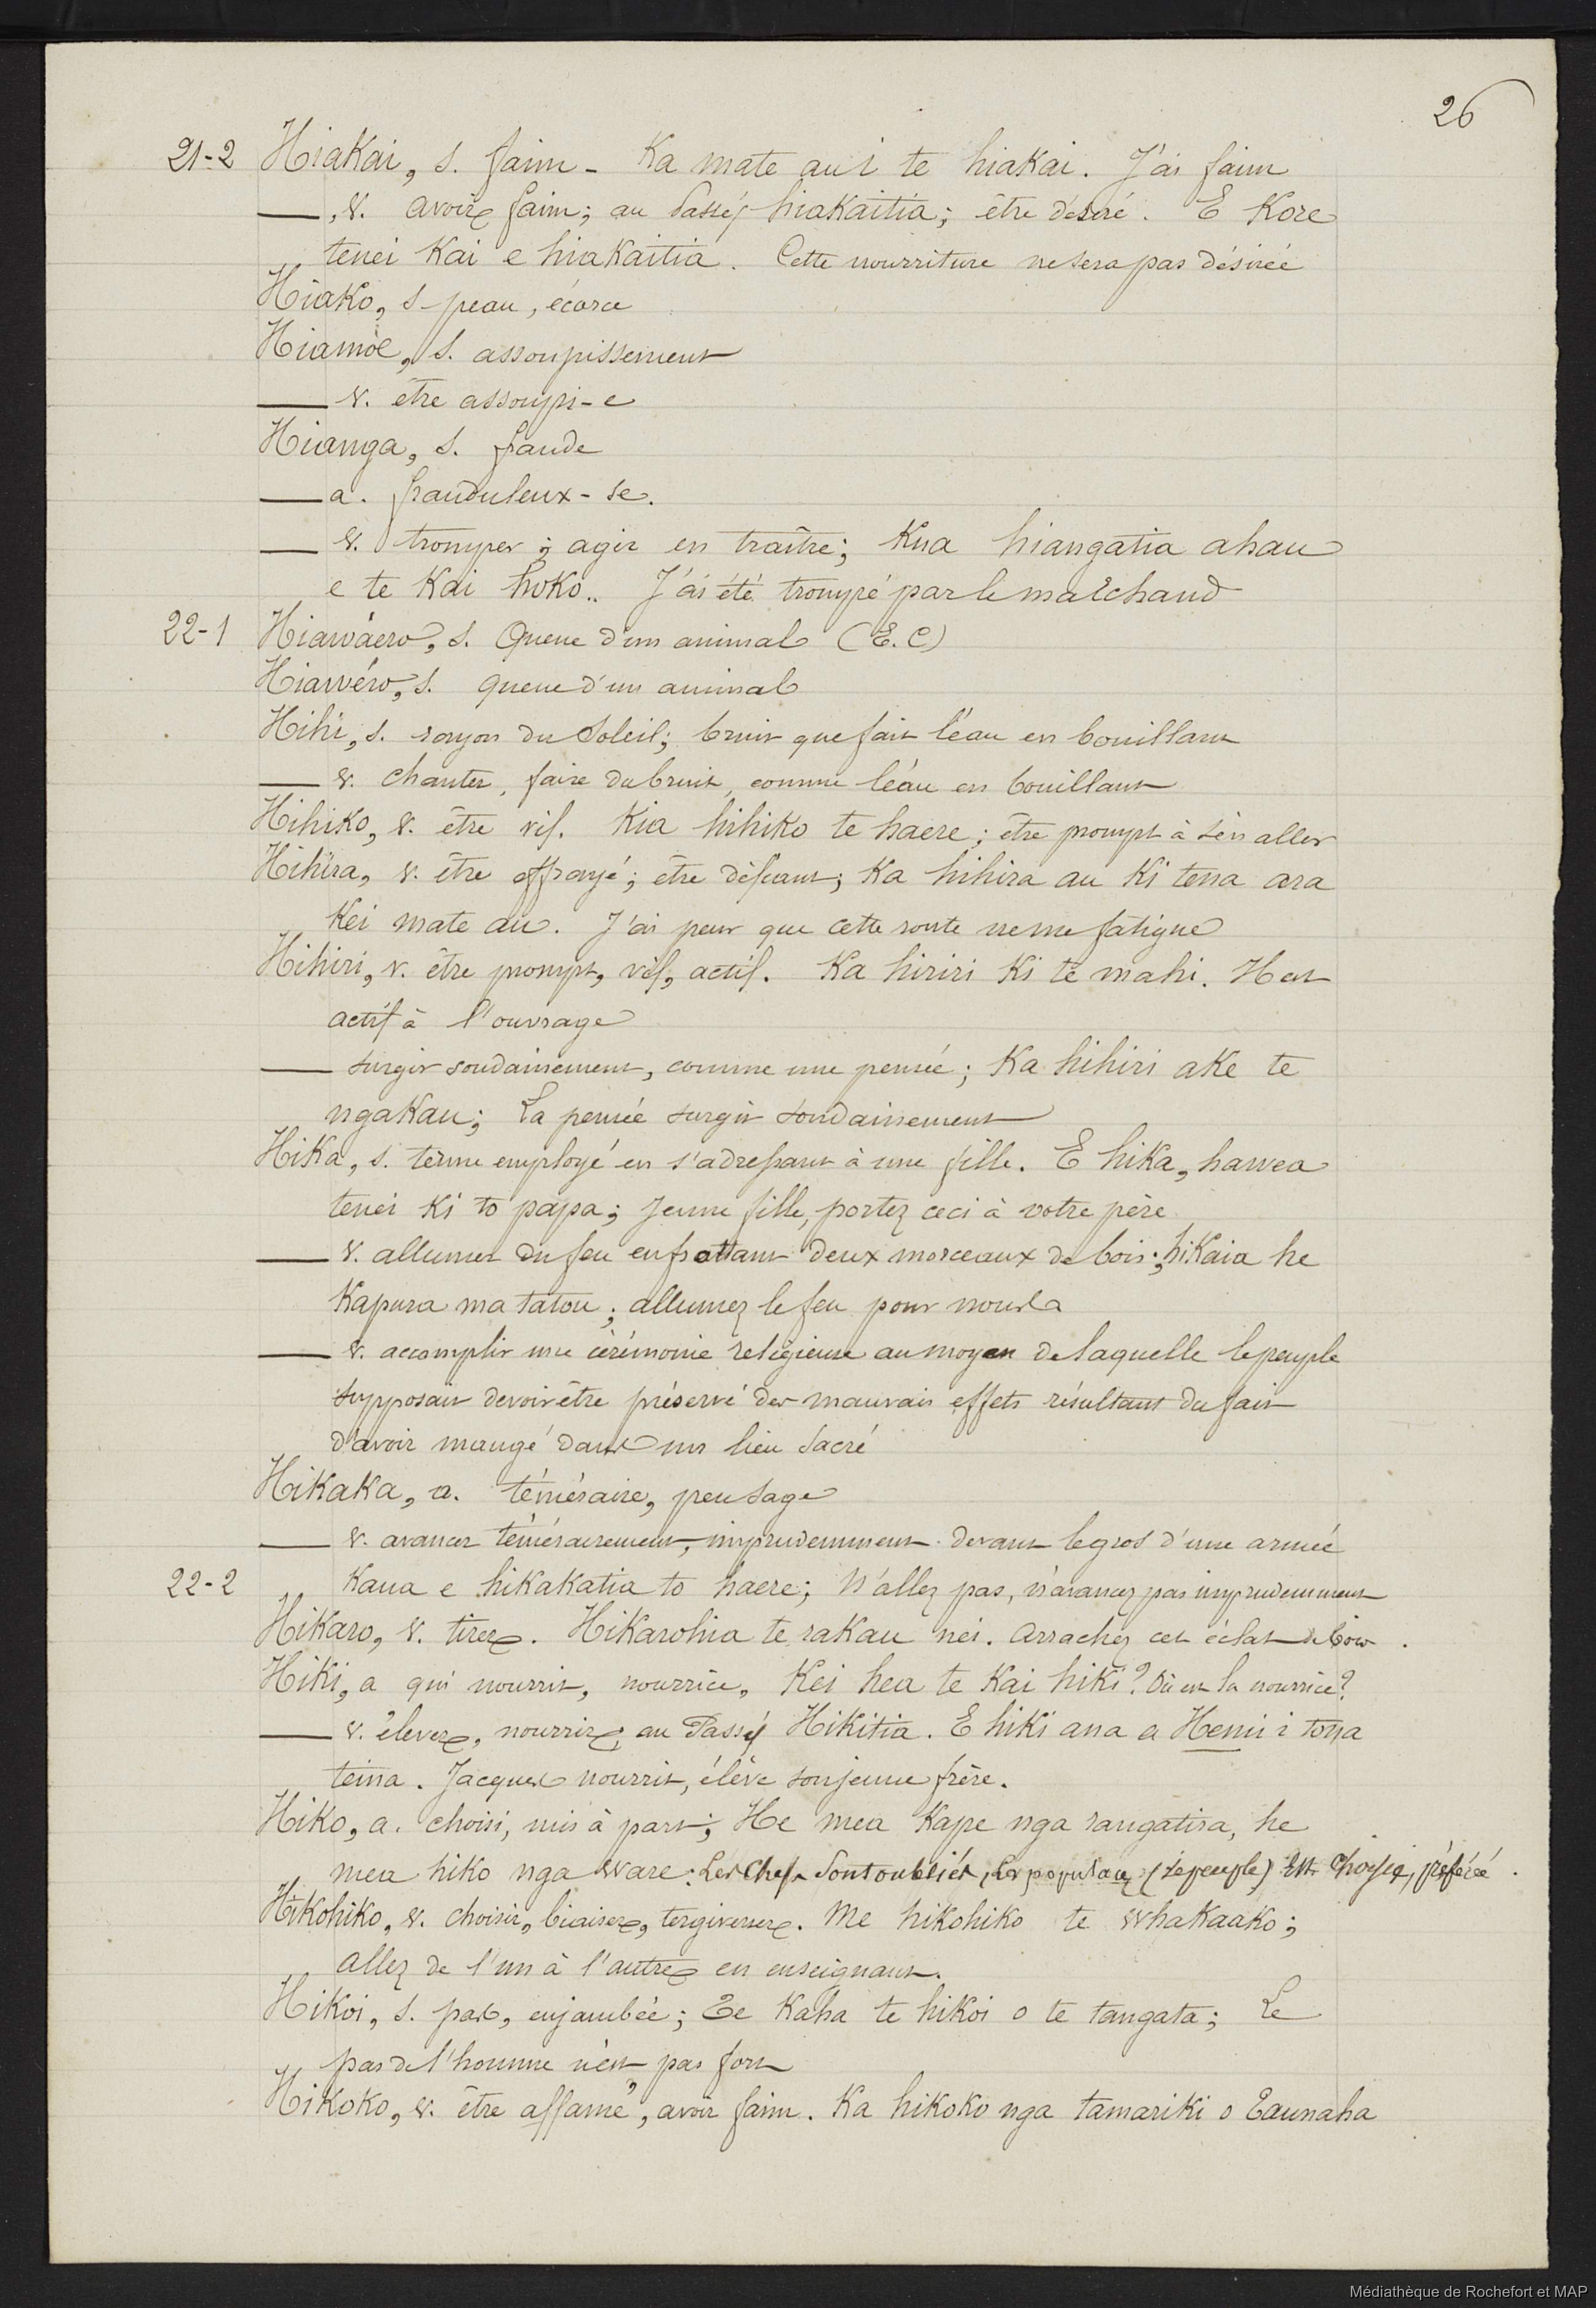 26
21-2 Hiakai, s. faim - Ka mate au i te hiakai. J'ai faim
——, v. avoir faim; au Passif hiakaitia; être désiré. E Kore
tenei Kai e hiakaitia. Cette nourriture ne sera pas désirée
Hiako, s - peau, écorce
Hiamoe, s. assoupissement
—— v. être assoupi-e
Hianga, s. fraude
—— a. frauduleux-se.
—— v. tromper; agir en traître; Kua hiangatia ahau
e te Kai hoko.. J'ai été trompé par le marchand
22-1 Hiawáero, s. Queue d'un animal (E.C)
Hiawéro, s. queue d'un animal
Hihi, s. rayon du Soleil; bruit que fait l'éau en bouillant
—— v. chanter, faire du bruit, comme l'éau en bouillant
Hihiko, v. être vif. Kia hihiko te haere; être prompt à s'én aller
Hihira, v. être effrayé; être défiant; Ka hihira au Ki tena ara
Kei mate au. J'ai peur que cette route ne me fatigue
Hihiri, v. être prompt, vif, actif. Ka hiriri Ki te mahi. Il est
actif à l'ouvrage
—— surgir soudainement, comme une pensée; Ka hihiri ake te
ngakau; La pensée surgit soudainement
Hika, s. terme employé en s'adressant à une fille. E hika, hawea
tenei ki to papa; Jeune fille, portez ceci à votre père
—— v. allumer du feu en frottant deux morceaux de bois; hikaia he
Kapura ma tatou; allumez le feu pour nous
—— v. accomplir une cérémonie religieuse au moyen de laquelle le peuple
supposait devoir être préservé des mauvais effets résultant du fait
d'avoir mangé dans un lieu sacré
Hikaka, a. téméraire, peu sage
—— v. avancer témérairement, imprudemment devant le gros d'une armée
22-2 Kaua e hikakatia to haere; N'allez pas, n'avancez pas imprudemment
Hikaro, v. tirer. Hikarohia te rakau nei. Arrachez cet éclat de bois.
Hiki, a qui nourrit, nourrice, Kei hea te Kai hiki? Où est la nourrice?
—— v. élever, nourrir; au Passif Hikitia. E hiki ana a Hemi i tona
teina. Jacques nourrit, élève son jeune frère.
Hiko, a. choisi, mis à part; He mea Kape nga rangatira, he
mea hiko nga ware: Les Chefs Sont oubliés, (Le peuple) Est Choisie, préférée.
Hikohiko, v. choisir, biaiser, tergiverser. Me hikohiko te whakaako;
allez de l'un à l'autre en enseignant.
Hikoi, s. pas, enjambée; Te Kaha te hikoi o te tangata; Le
pas de l'homme n'est pas fort
Hikoko, v. être affamé, avoir faim. Ka hikoko nga tamariki o Taunaha
Médiathèque de Rochefort et MAP